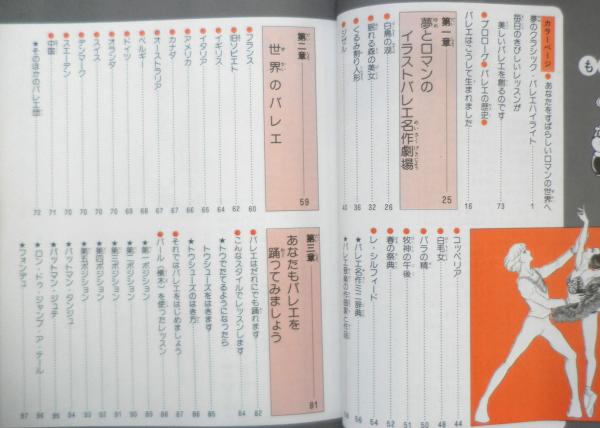 も
カラーページ
●あなたをすばらしいロマンの世界へ
夢のクラシック・バレエハイライト 1
毎日のきびしいレッスンが
美しいバレエを創るのです 73
●プロローグ●バレエの歴史●
バレエはこうして生まれました 16
第一章
夢とロマンの
イラストバレエ名作劇場
25
白鳥の湖 26
眠れる森の美女 32
くるみ割り人形 36
ジゼル 40
コッペリア 44
白毛女 48
バラの精 50
牧神の午後 51
春の祭典 52
レ・シルフィード 54
★バレエ名作ミニ辞典 56
第二章
世界のバレエ
59
フランス 60
旧ソビエト 62
イギリス 64
イタリア 65
アメリカ 66
カナダ 67
オーストラリア 67
ドイツ 68
ベルギー
オランダ
スイス 70
デンマーク 70
スエーデン 71
中国 72
★そのほかのバレエ団 72
第三章
あなたもバレエを
踊ってみましょう
81
バレエはだれにでも踊れます 82
こんなスタイルでレッスンします 84
★トウでたてるようになったら
トウシューズをはきます 85
★トウシューズのはき方 86
それではバレエをはじめましょう
バール(横木)を使ったレッスン
第一ポジション
第二ポジション
第三ポジション
第四ポジション
第五ポジション
バットマン・タンジュ
バットマン・ジュテ 95
ロン・ドゥ・ジャンブ・ア・テール 96
フォンデュ 97